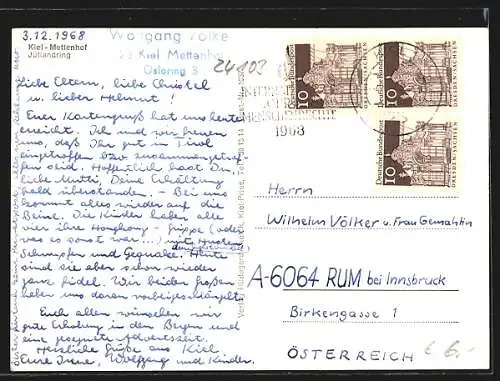 3.12.1968
Kiel - Mettenhof
Jütlandring
Wolfgang Völke
23 Kiel Mettenhof
Osloring 5
24103
1968
Deutsche Bundespost
10
DRESDEN/SACHSEN
Deutsche Bundespost
10
DRESDEN/SACHSEN
Deutsche Bundespost
10
DRESDEN/SACHSEN
Liebe Eltern, liebe Christel
u. lieber Helmut!
Euer Kartengruß hat uns heute
erreicht. Ich und wir freuen
uns, daß Ihr gut in Tirol
angetroffen bzw zusammengetrof-
fen seid. Hoffentlich hast Du,
liebe Mutti, Deine Erkältung
bald überstanden. - Bei uns
kommt alles wieder auf die
Beine. Die Kinder haben alle
vier ihre Hongkong-Grippe (oder
was es sonst war...) mit Husten
Schnupfen und Gequake. Heute
sind sie aber schon wieder
ganz fidel. Wir beiden großen
haben uns daran vorbeigeschlängelt.
Euch allen wünschen wir
gute Erholung in den Bergen und
eine gesegnete Adventszeit.
Herzliche Grüße aus Kiel
Eure Irene, Wolfgang und Kinder.
Herrn
Wilhelm Völker u. Frau Gemahlin
A-6064 RUM bei Innsbruck
Birkengasse 1
ÖSTERREICH
€ 6,-